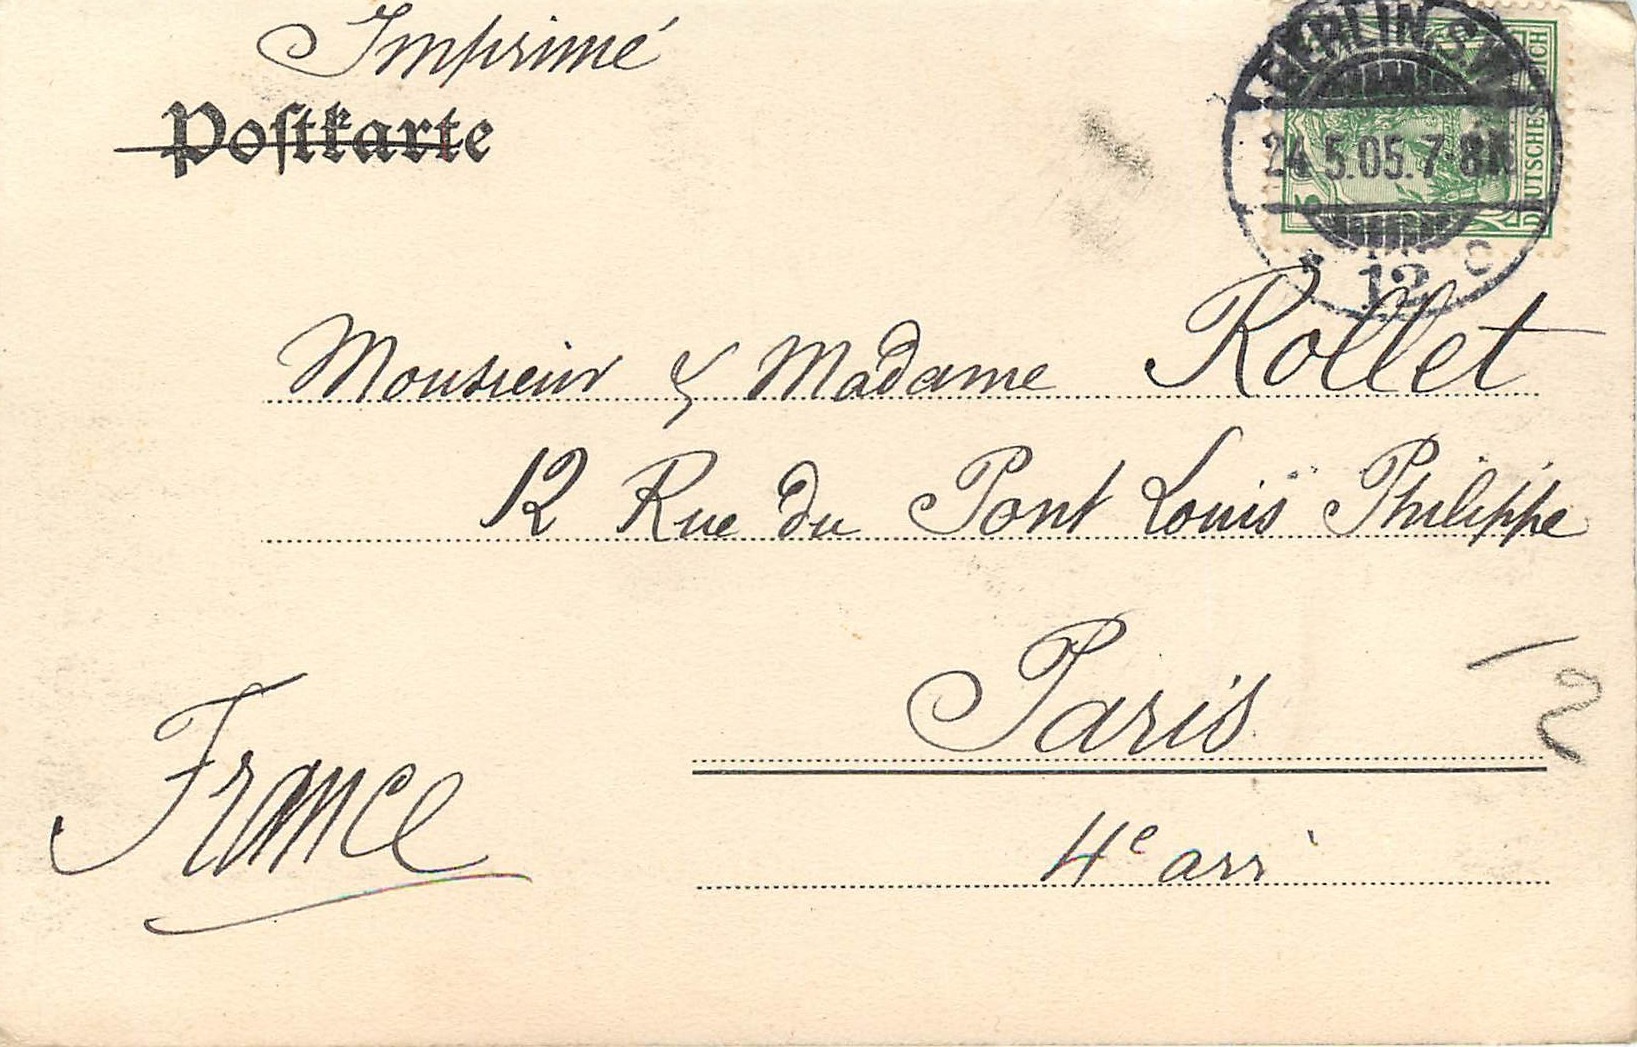 Imprimé
Postkarte
BERLIN. S.W.
24.5.05.7-8N.
* 12 c
DEUTSCHES REICH
5
Monsieur & Madame Rollet
12 Rue du Pont Louis Philippe
Paris
4e arr
France
2